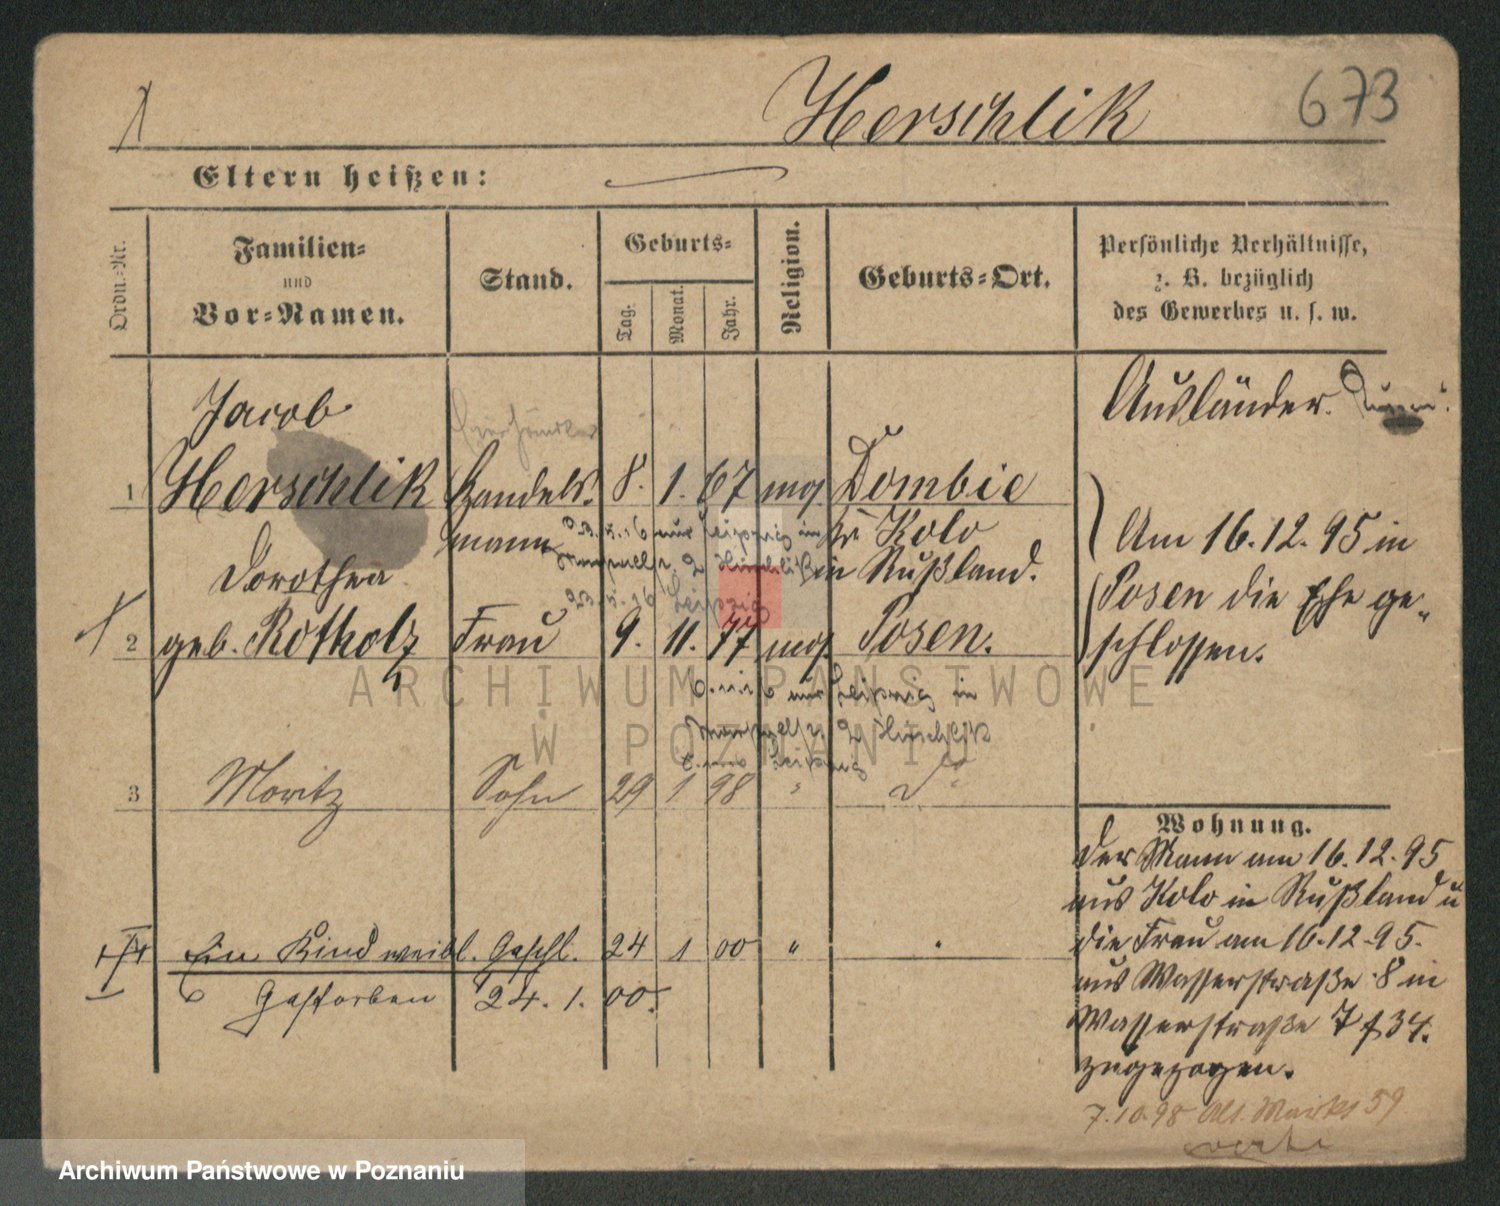 Herschlik
673
Eltern heißen:
Ordn.-Nr.
Familien-
und
Vor-Namen.
Stand.
Geburts-
Tag.
Monat.
Jahr.
Religion.
Geburts-Ort.
Persönliche Verhältnisse,
z. B. bezüglich
des Gewerbes u. s. w.
Jacob
Ausländer.
1 Herschlik Handels- 8. 1. 67 mos. Dombie
mann
Kr Kolo
in Rußland.
23.5.16 nur Leipzig in
23.5.16 Leipzig
Am 16.12.95 in
Posen die Ehe ge-
schlossen.
Dorothea
2 geb. Rotholz Frau 9. 11. 77 mos. Posen.
nur Leipzig in
3 Moritz Sohn 29 1 98 "
Ein Kind weibl. Geschl. 24 1 00 "
Gestorben 24. 1. 00.
Wohnung.
Der Mann am 16.12.95
aus Kolo in Rußland u
die Frau am 16.12.95.
aus Wasserstraße 8 in
Wasserstraße 7 f 34.
zugezogen.
7.10.98 Alt. Markt 59
ARCHIWUM PAŃSTWOWE
W POZNANIU
Archiwum Państwowe w Poznaniu